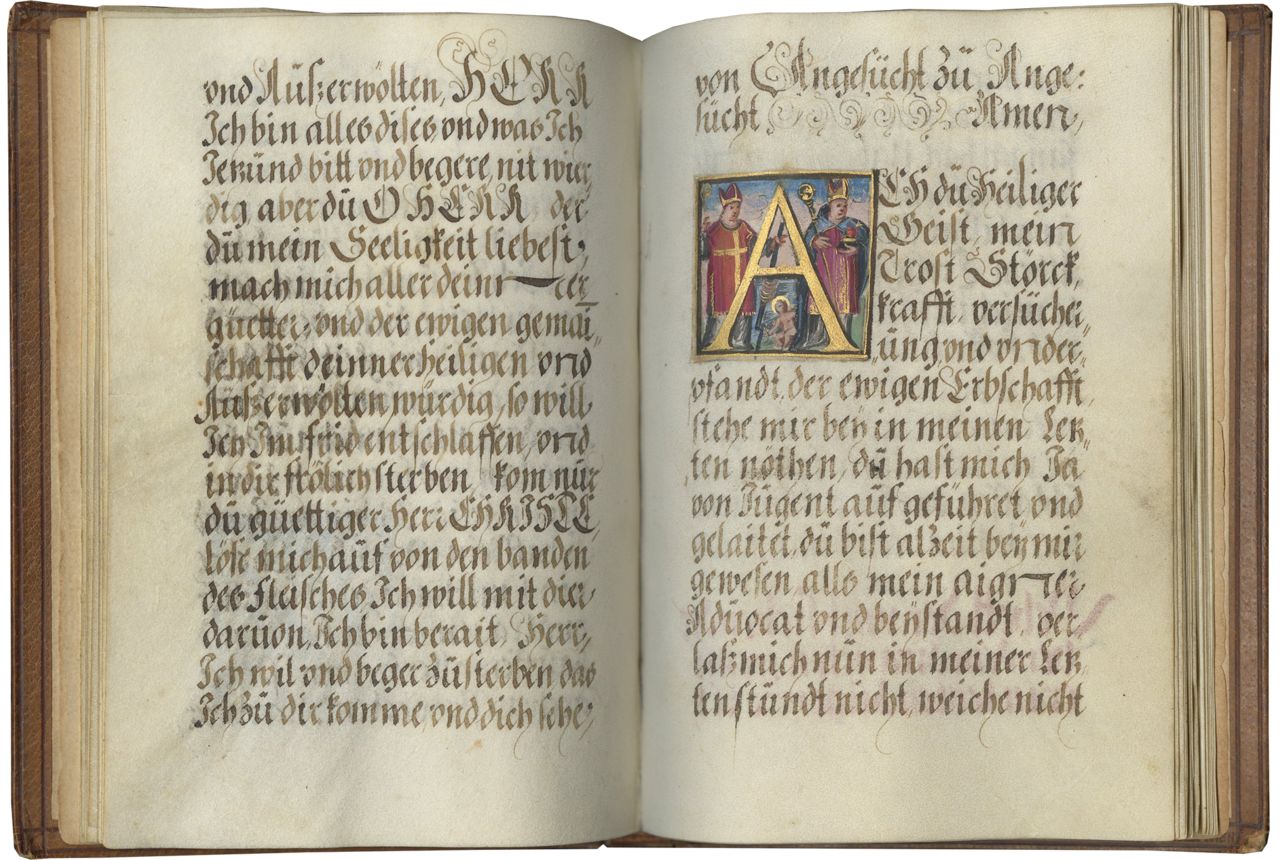 vnd Aüßerwölten, HERR
Ich bin alles dises vnd was Ich
Jetzünd bitt vnd begere, nit wür,
dig aber dü O HERR der
dü mein Seeligkeit liebest,
mach mich aller deiner
güetter, vnd der ewigen gemai,
schafft deinner heiligen vnd
Aüßerwölten würdig, so will
Ich Im frid entschlaffen, vnd
in dir frölich sterben, kom nür
dü güettiger Herr CHRISTE
löse mich auf von den banden
des fleisches, Ich will mit dier
daruon, Ich bin berait, Herr,
Ich wil vnd beger zü sterben das
Ich zü dir komme, vnd dich sehe,
von Angesücht zü Ange:
sücht Amen,
ACH dü Heiliger
Geist, mein
Trost Störck,
krafft, versücher,
üng vnd vnder,
pfandt, der ewigen Erbschafft,
stehe mir bey in meinen Letz,
ten nöthen, dü hast mich Ja
von Jügent auf geführet vnd
gelaitet, dü bist alzeit bey mir
gewesen alls mein aigner
Aduocat vnd beystandt, ver,
laß mich nün in meiner Letz
ten stündt nicht, weiche nicht